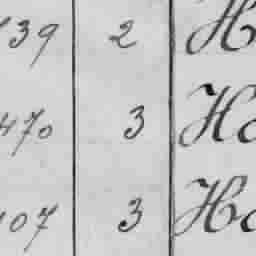 139 2 H
470 3 Ha
107 3 Ha